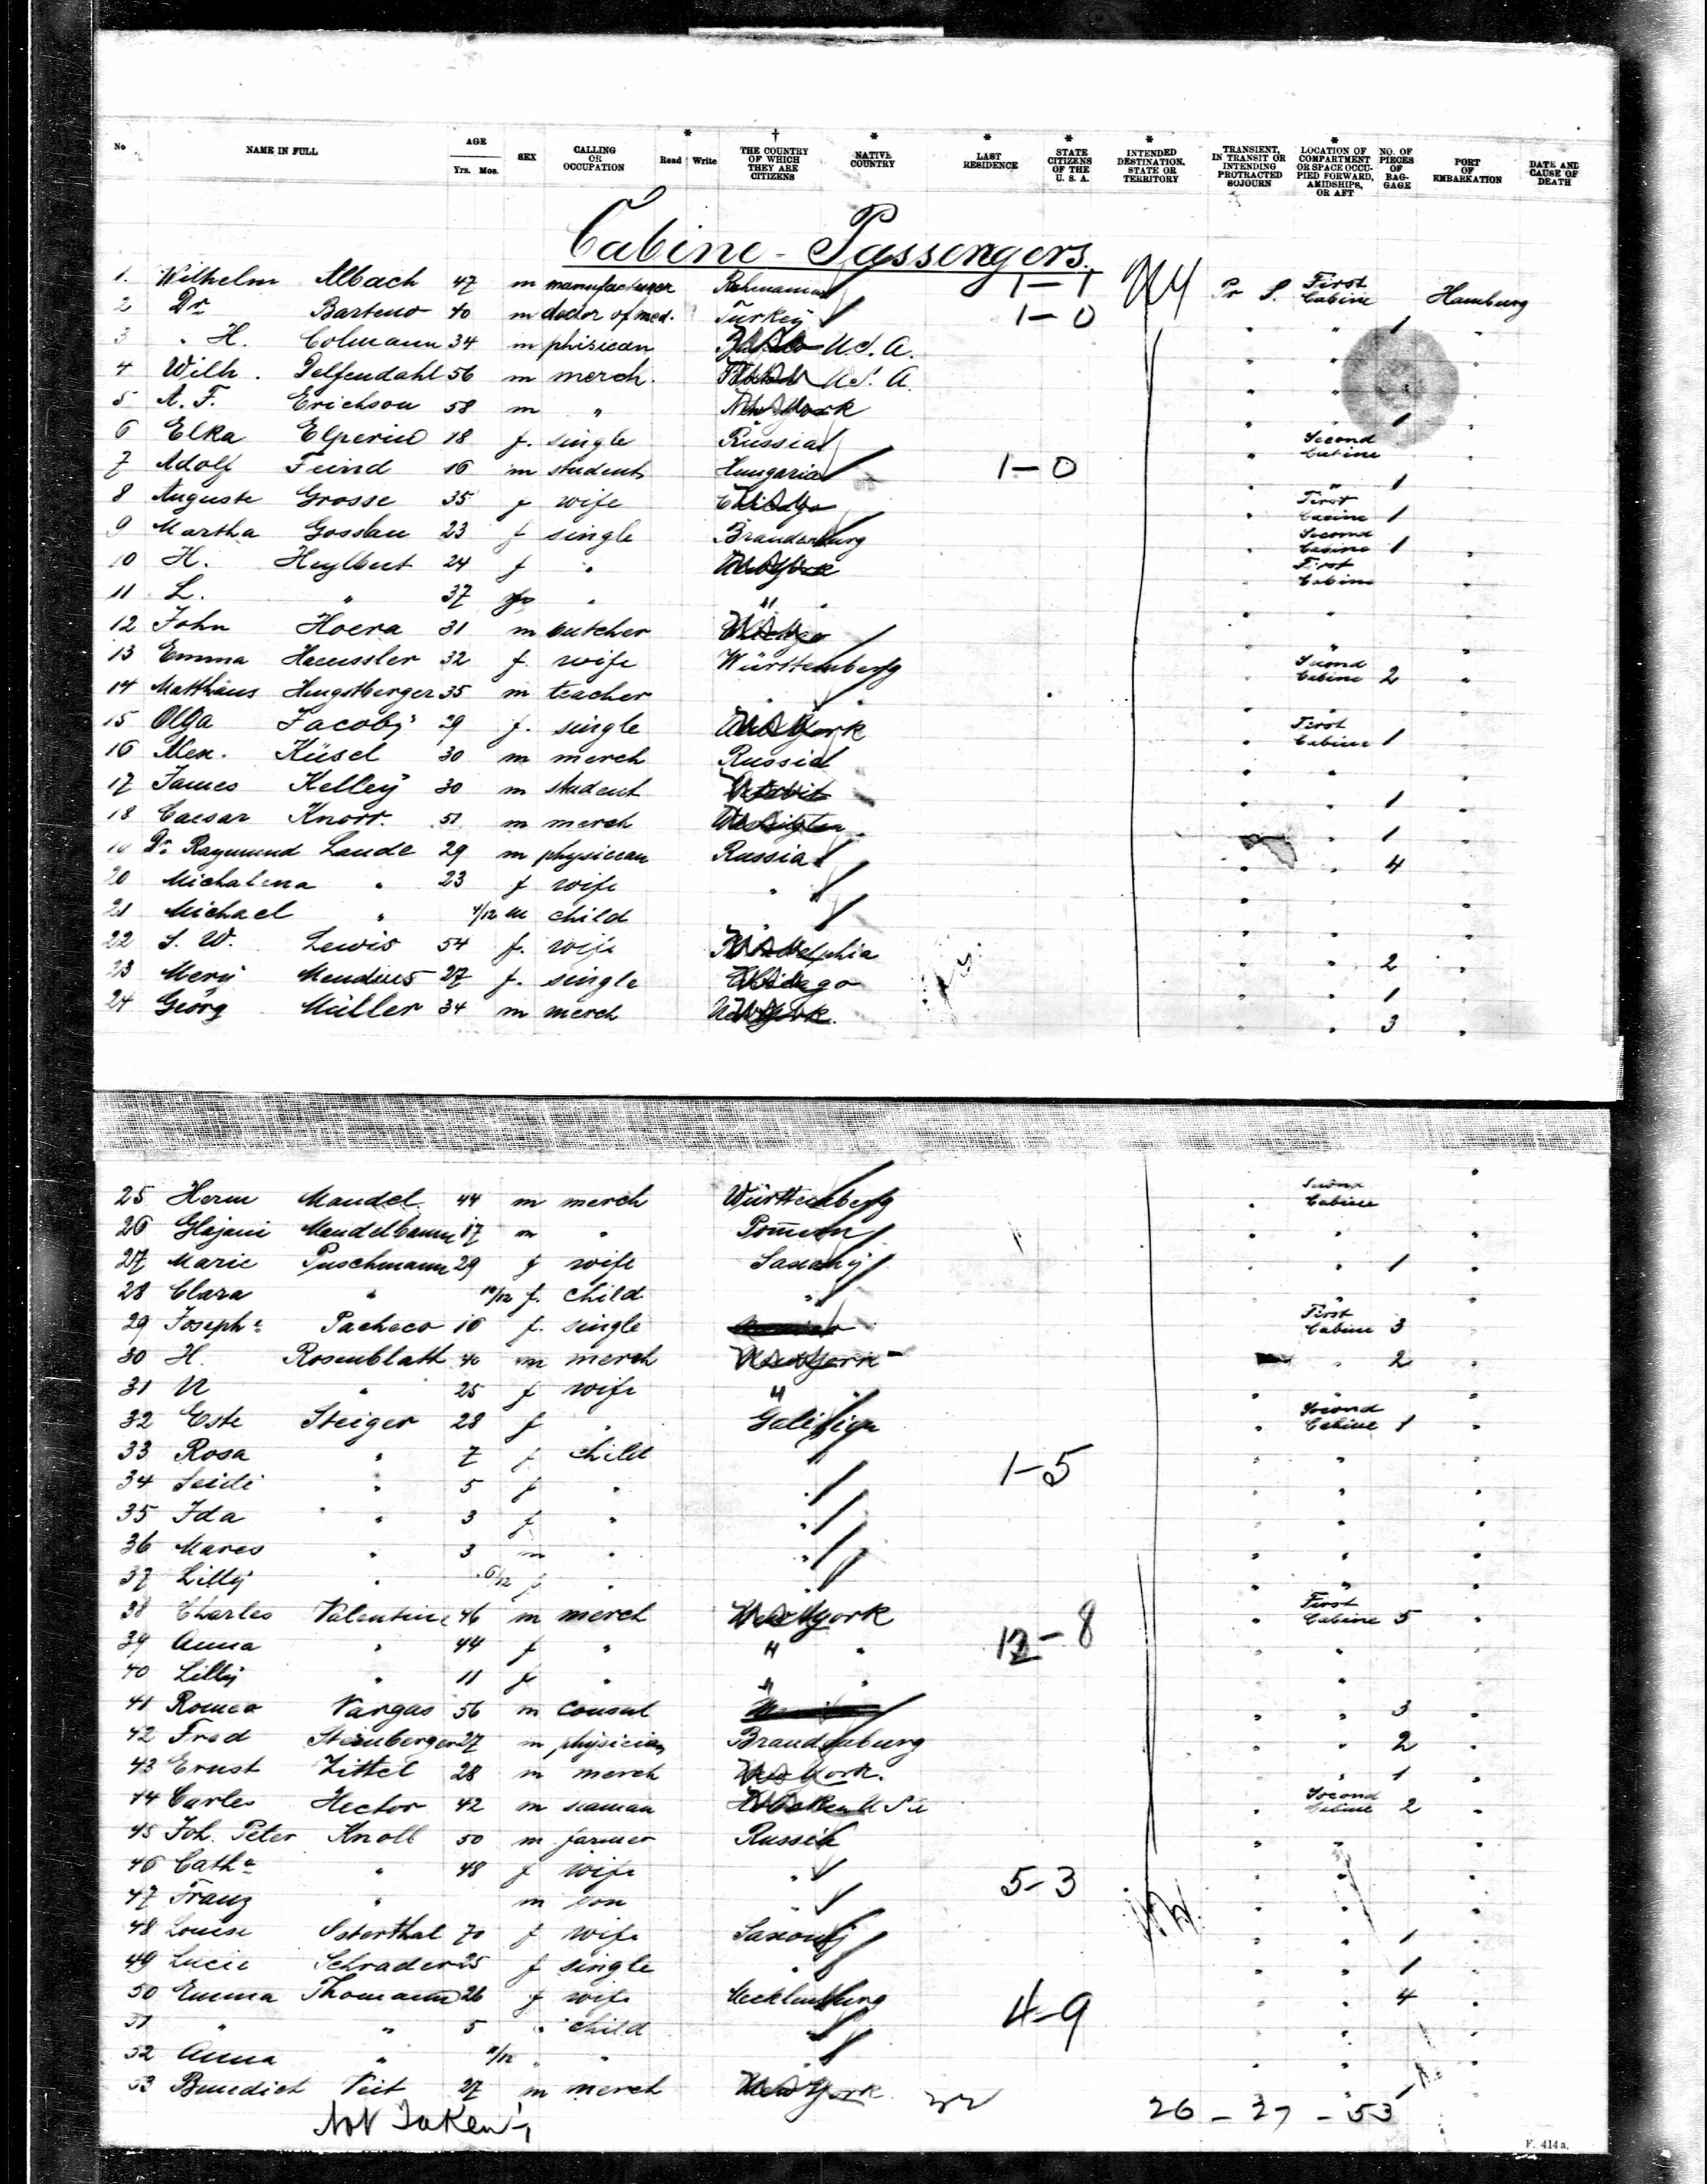 No NAME IN FULL AGE Yrs. Mos. SEX CALLING OR OCCUPATION * Read Write † THE COUNTRY OF WHICH THEY ARE CITIZENS * NATIVE COUNTRY * LAST RESIDENCE * STATE CITIZENS OF THE U. S. A. * INTENDED DESTINATION, STATE OR TERRITORY TRANSIENT, IN TRANSIT OR INTENDING PROTRACTED SOJOURN * LOCATION OF COMPARTMENT OR SPACE OCCUPIED FORWARD, AMIDSHIPS, OR AFT NO. OF PIECES OF BAGGAGE PORT OF EMBARKATION DATE AND CAUSE OF DEATH
Cabine - Passengers.
1. Wilhelm Albach 47 m manufacturer 1-1 Pr S. First Cabine Hamburg
2 Dr Barteno 40 m doctor of med. Turkey 1-0 " " 1 "
3 " H. Colmann 34 m phisician U.S.A. " "
4 Wilh. Delfendahl 56 m merch. U.S.A. " "
5 A. F. Erichson 58 m " New York " " 1 "
6 Elka Elperin 18 f. single Russia " Second Cabine "
7 Adolf Feind 16 m student Hungaria 1-0 " " 1 "
8 Auguste Grosse 35 f wife Chicago " First Cabine 1 "
9 Martha Gosslau 23 f single Brandenburg " Second Cabine 1 "
10 H. Heylbut 24 f " " First Cabine "
11 L. " 37 " " " " "
12 John Hoera 31 m butcher " " "
13 Emma Haeussler 32 f. wife Württemberg " Second Cabine 2 "
14 Matthäus Hengstberger 35 m teacher " " " "
15 Olga Jacoby 29 f. single New York " First Cabine 1 "
16 Alex. Küsel 30 m merch Russia " " "
17 James Kelley 30 m student " " 1 "
18 Caesar Knorr. 51 m merch " 1 "
19 Dr. Raymund Laude 29 m physician Russia " " 4 "
20 Michalena " 23 f wife " " " "
21 Michael " m child " " "
22 S. W. Lewis 54 f. wife Philadelphia " " 2 "
23 Mery Mendius 27 f. single Chicago " " 1 "
24 Georg Müller 34 m merch New York. " " 3 "
25 Herm Mandel 44 m merch Württemberg " Second Cabine "
26 Mandelbaum 17 m " " " "
27 Marie Puschmann 29 f wife Saxony " " 1 "
28 Clara " 10/12 f. child " " " "
29 Josephe Pacheco 16 f. single First Cabine 3 "
30 H. Rosenblatt 40 m merch New York " 2 "
31 N " 25 f wife " " " "
32 Este Steiger 28 f " Galizien " Second Cabine 1 "
33 Rosa " 7 f child 1-5 " " "
34 Seide " 5 f " " " " "
35 Ida " 3 f " " " " "
36 Mares " 3 m " " " " "
37 Lilly " 6/12 f " " " " "
38 Charles Valentine 46 m merch New York " First Cabine 5 "
39 Anna " 44 f " " " 12-8 " " "
40 Lilly " 11 f " " " " "
41 Romeo Vargas 56 m consul " " 3 "
42 Fred Steinberger 27 m physician Brandenburg " " 2 "
43 Ernst Zittel 28 m merch New York. " " 1 "
44 Carles Hector 42 m seaman " Second Cabine 2 "
45 Joh. Peter Knoll 50 m farmer Russia " " "
46 Cathe " 48 f wife " 5-3 " " "
47 Franz " m son " " " "
48 Louise Osterthal 70 f wife Saxony " " 1 "
49 Lucie Schrader 25 f single " " " 1 "
50 Emma Thomann 26 f wife Mecklenburg " " 4 "
51 " " 5 " child " 4-9 " " "
52 Anna " 11/12 " " " " " "
53 Benedict Veit 27 m merch New York " 1
26 - 27 - 53
Not Taken
F. 414 a.